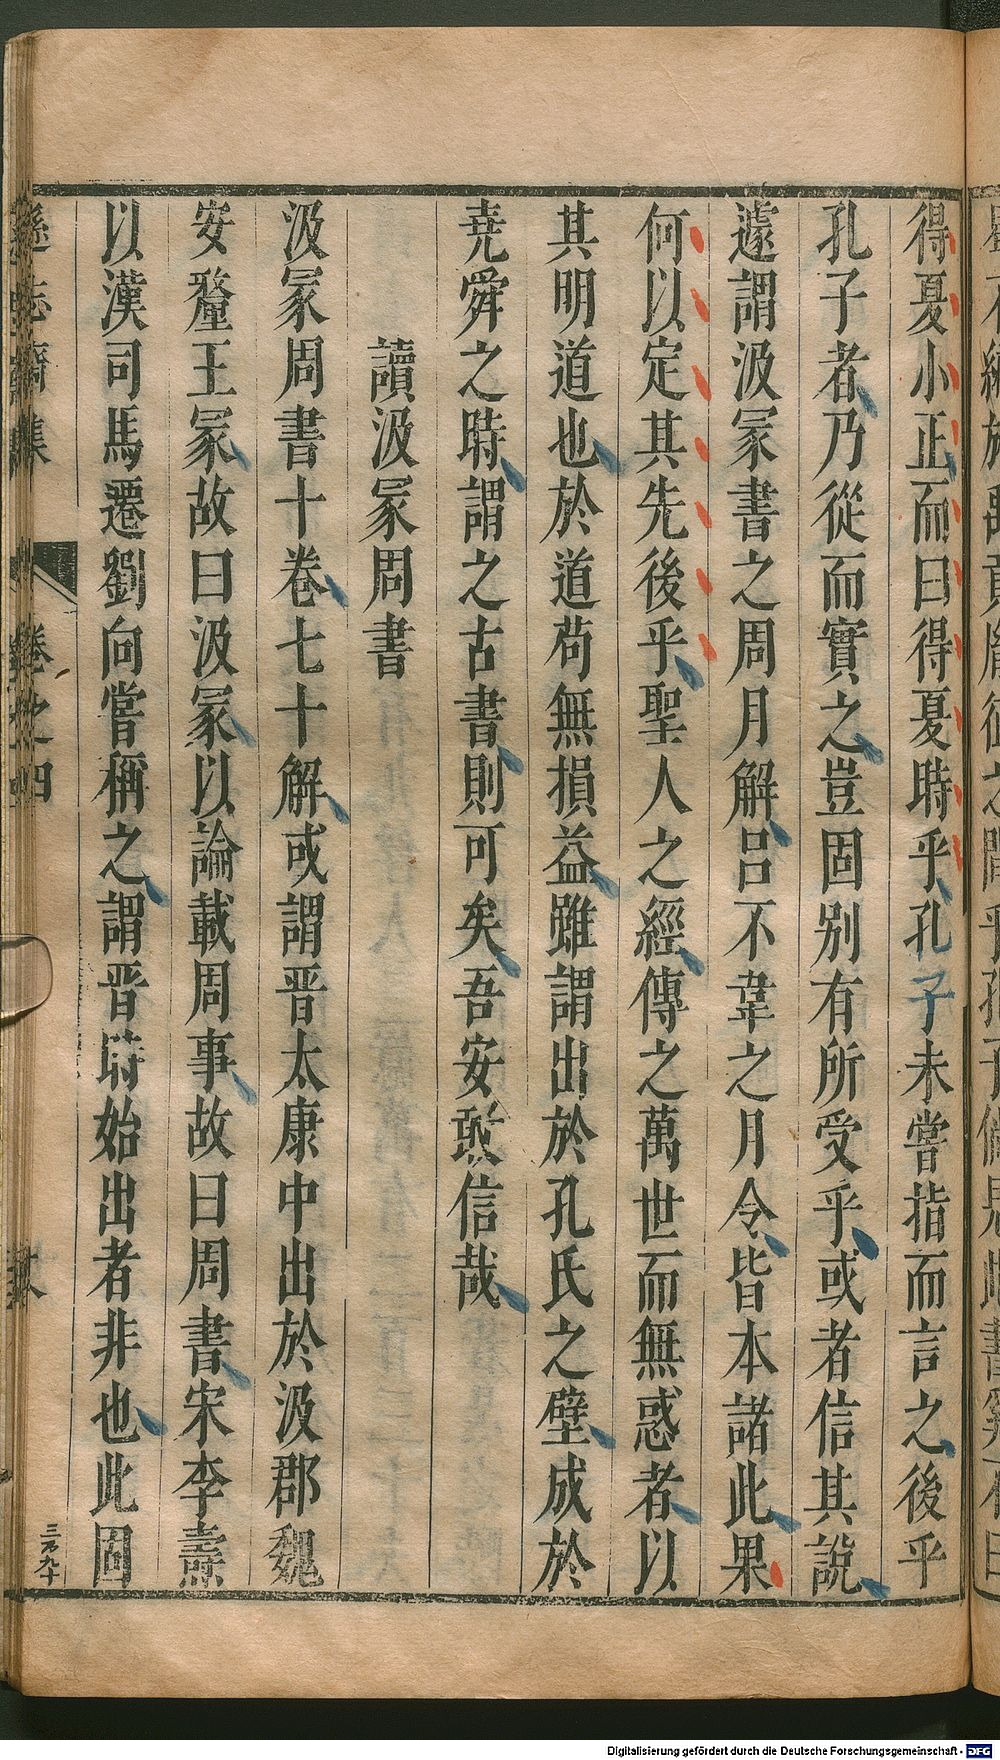 得夏小正而曰得夏時乎孔子未嘗指而言之後乎
孔子者乃從而實之豈固別有所受乎或者信其說
遽謂汲冢書之周月解呂不韋之月令皆本諸此果
何以定其先後乎聖人之經傳之萬世而無惑者以
其明道也於道茍無損益雖謂出於孔氏之壁成於
堯舜之時謂之古書則可矣吾安敢信哉
讀汲冢周書
汲冢周書十卷七十解或謂晋太康中出於汲郡魏
安釐王冢故曰汲冢以論載周事故曰周書宋李燾
以漢司馬遷劉向嘗稱之謂晋時始出者非也此固
遜志齋集
卷之四
三百九十
Digitalisierung gefördert durch die Deutsche Forschungsgemeinschaft - DFG